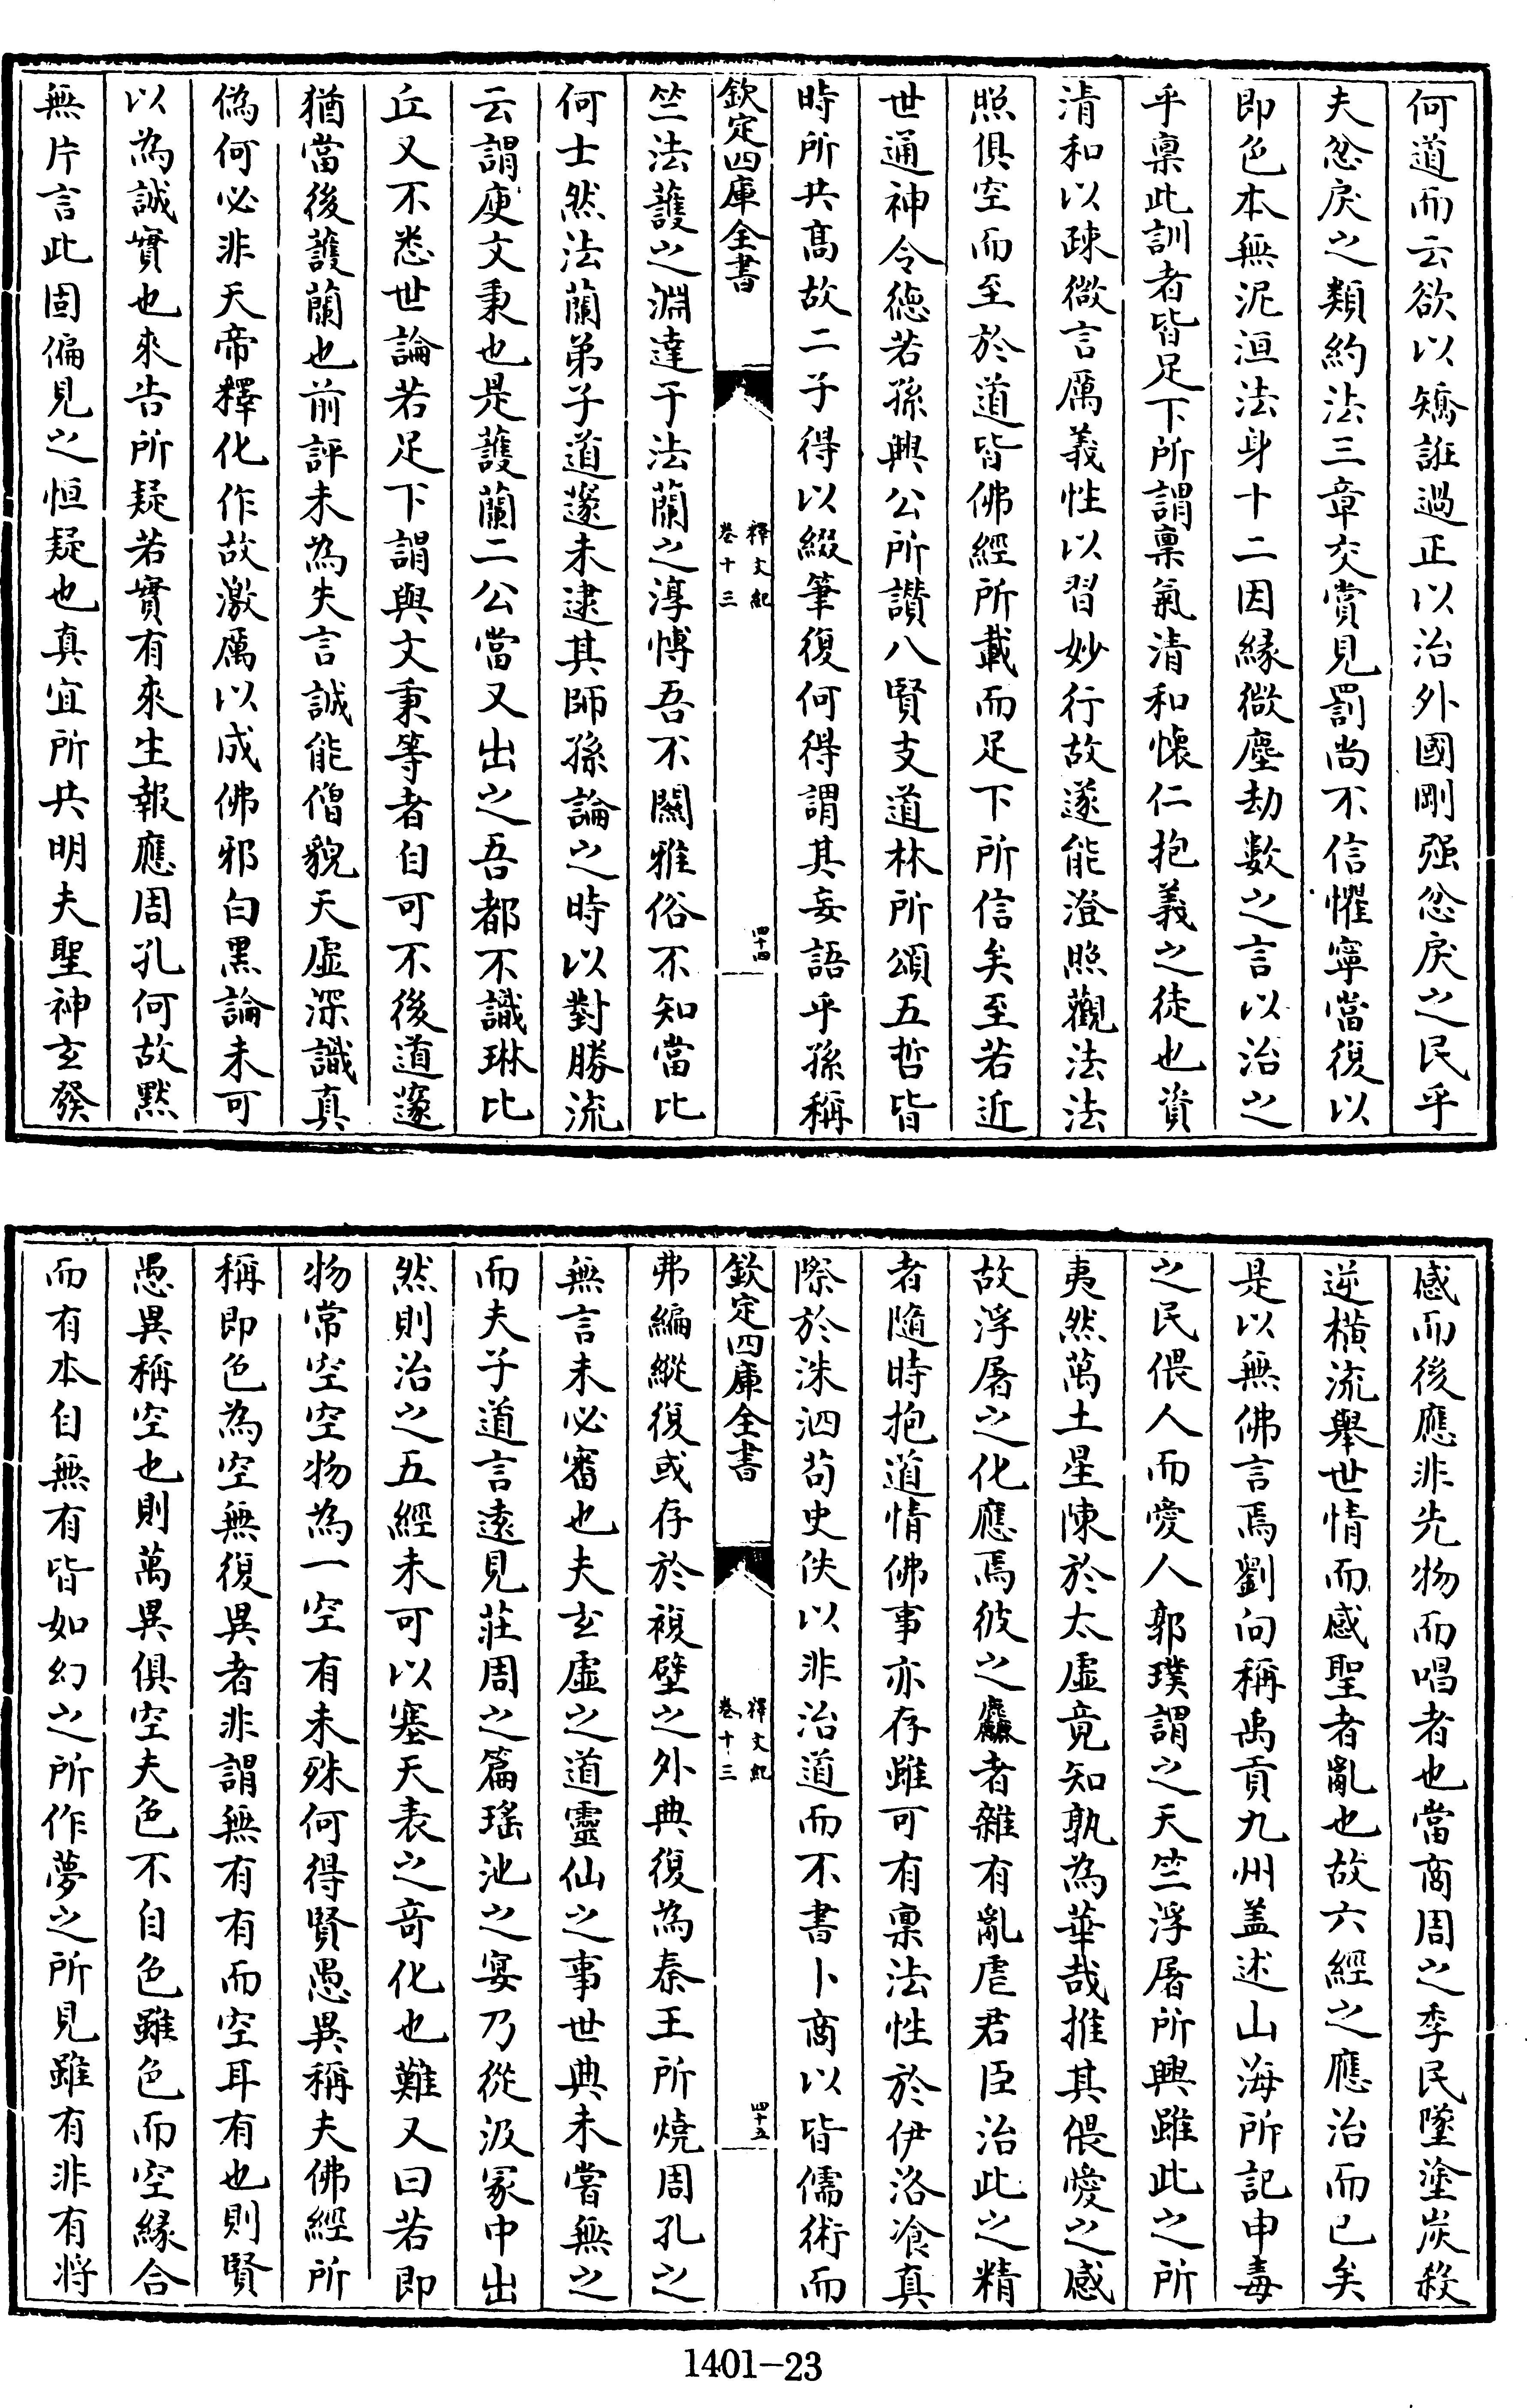 何道而云欲以矯誑過正以治外國剛强忿戾之民乎
夫忿戾之類約法三章交賞見罰尚不信懼寧當復以
即色本無泥洹法身十二因緣微塵劫數之言以治之
乎稟此訓者皆足下所謂稟氣清和懷仁抱義之徒也資
清和以疎微言厲義性以習妙行故遂能澄照觀法法
照俱空而至於道皆佛經所載而足下所信矣至若近
世通神令德若孫興公所讃八賢支道林所頌五哲皆
時所共高故二子得以綴筆復何得謂其妄語乎孫稱
欽定四庫全書
釋文紀
卷十三
四十四
竺法護之淵達于法蘭之淳博吾不關雅俗不知當比
何士然法蘭弟子道邃未逮其師孫論之時以對勝流
云謂庾文秉也是護蘭二公當又出之吾都不識琳比
丘又不悉世論若足下謂與文秉等者自可不後道邃
猶當後護蘭也前評未為失言誠能僧貌天虛深識真
偽何必非天帝釋化作故激厲以成佛邪白黑論未可
以為誠實也來告所疑若實有來生報應周孔何故黙
無片言此固偏見之恒疑也真宜所共明夫聖神玄發
感而後應非先物而唱者也當商周之季民墜塗炭殺
逆横流舉世情而感聖者亂也故六經之應治而已矣
是以無佛言焉劉向稱禹貢九州盖述山海所記申毒
之民偎人而愛人郭璞謂之天竺浮屠所興雖此之所
夷然萬土星陳於太虛竟知孰為華哉推其偎愛之感
故浮屠之化應焉彼之麤者雜有亂虐君臣治此之精
者隨時抱道情佛事亦存雖可有稟法性於伊洛飡真
際於洙泗苟史佚以非治道而不書卜商以皆儒術而
欽定四庫全書
釋文紀
卷十三
四十五
弗編縱復或存於複壁之外典復為秦王所燒周孔之
無言未必審也夫玄虛之道靈仙之事世典未嘗無之
而夫子道言遠見莊周之篇瑤池之宴乃從汲冢中出
然則治之五經未可以塞天表之奇化也難又曰若即
物常空空物為一空有未殊何得賢愚異稱夫佛經所
稱即色為空無復異者非謂無有有而空耳有也則賢
愚異稱空也則萬異俱空夫色不自色雖色而空緣合
而有本自無有皆如幻之所作夢之所見雖有非有將
1401-23